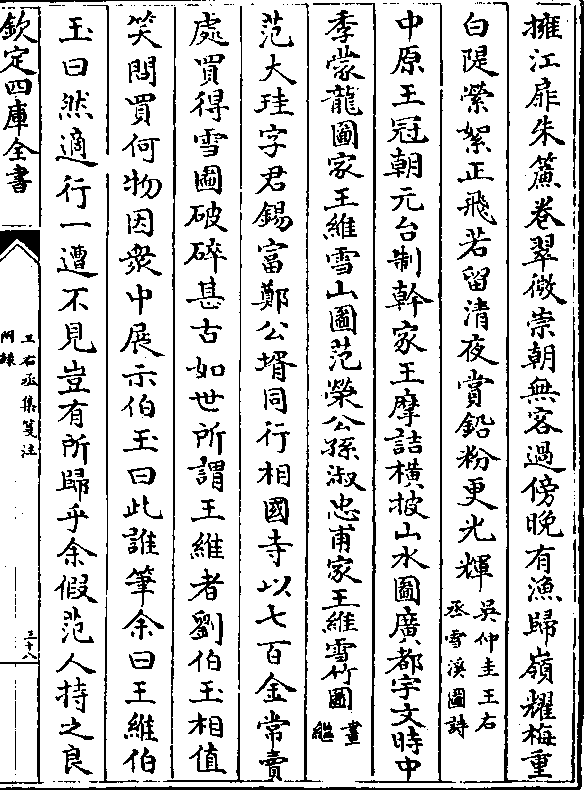 擁江扉朱簾卷翠微崇朝無客過傍晚有漁歸嶺耀梅重
白隄縈絮正飛若留清夜賞鉛粉更光輝吳仲圭王右丞雪溪圖詩
中原王冠朝元台制幹家王摩詰横披山水圖廣都宇文時中
季蒙龍圖家王維雪山圖范榮公孫淑忠甫家王維雪竹圖畫繼
范大珪字君錫富鄭公壻同行相國寺以七百金常賣
處買得雪圖破碎甚古如世所謂王維者劉伯玉相值
笑問買何物因衆中展示伯玉曰此誰筆余曰王維伯
玉曰然適行一遭不見豈有所歸乎余假范人持之良
欽定四庫全書
王右丞集箋注
附錄
三十八